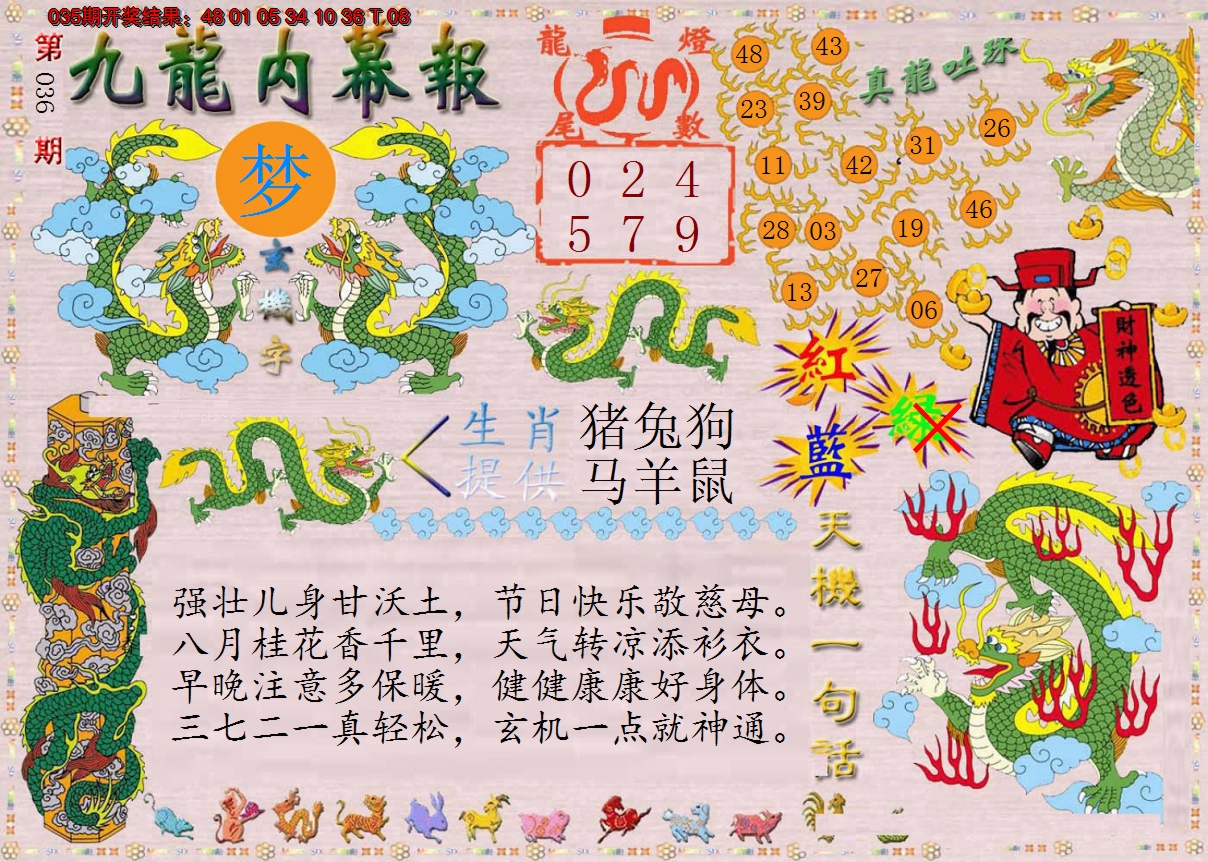 035期开奖结果：48 01 05 34 10 36 T 08
第036期
九龍内幕報
梦
玄機字
龍燈尾數
0 2 4
5 7 9
真龍吐珠
48 43
23 39
11 42 31 26
28 03 19 46
13 27 06
財神透色
紅
綠
藍
生肖提供
猪兔狗
马羊鼠
天機一句话
强壮儿身甘沃土，节日快乐敬慈母。
八月桂花香千里，天气转凉添衫衣。
早晚注意多保暖，健健康康好身体。
三七二一真轻松，玄机一点就神通。